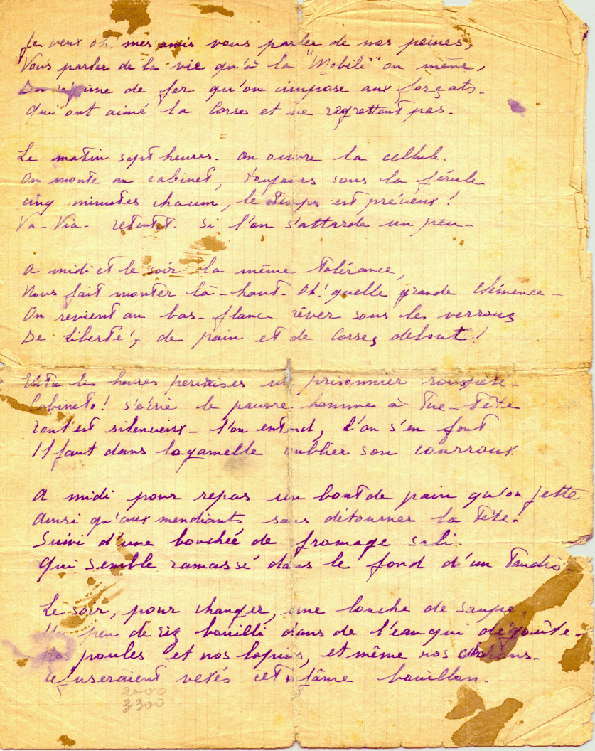 Je veux oh mes amis vous parler de nos peines,
Vous parler de la vie qu'à la "Mobile" on mène,
Du régime de fer qu'on impose aux forçats.
Qui ont aimé la Corse et ne regrettent pas.
Le matin sept heures. on ouvre la cellule
on monte au cabinet, toujours sous la férule
cinq minutes chacun, le temps est précieux !
Va-Via. retentit. si l'on s'attarde un peu-
A midi et le soir la même tolérance,
Nous fait monter là-haut. Oh! quelle grande clémence-
On revient au bas-flanc rêver sous les verrous
De liberté, de pain et de Corses debout !
les heures un prisonnier
Cabinets! s'écrie le pauvre homme à Tue-Tête
tout est silencieux- l'on entend, l'on s'en fout
Il faut dans la gamelle oublier son courroux
A midi pour repas un bout de pain qu'on jette
Ainsi qu'aux mendiants sans détourner la Tête.
Suivi d'une bouchée de fromage sali.
Qui semble ramassé dans le fond d'un Taudis
Le soir, pour changer, une louche de soupe,
Un peu de riz bouilli dans de l'eau qui dégoûte-
Nos poules et nos lapins, et même nos
bouillon.
2000
3300